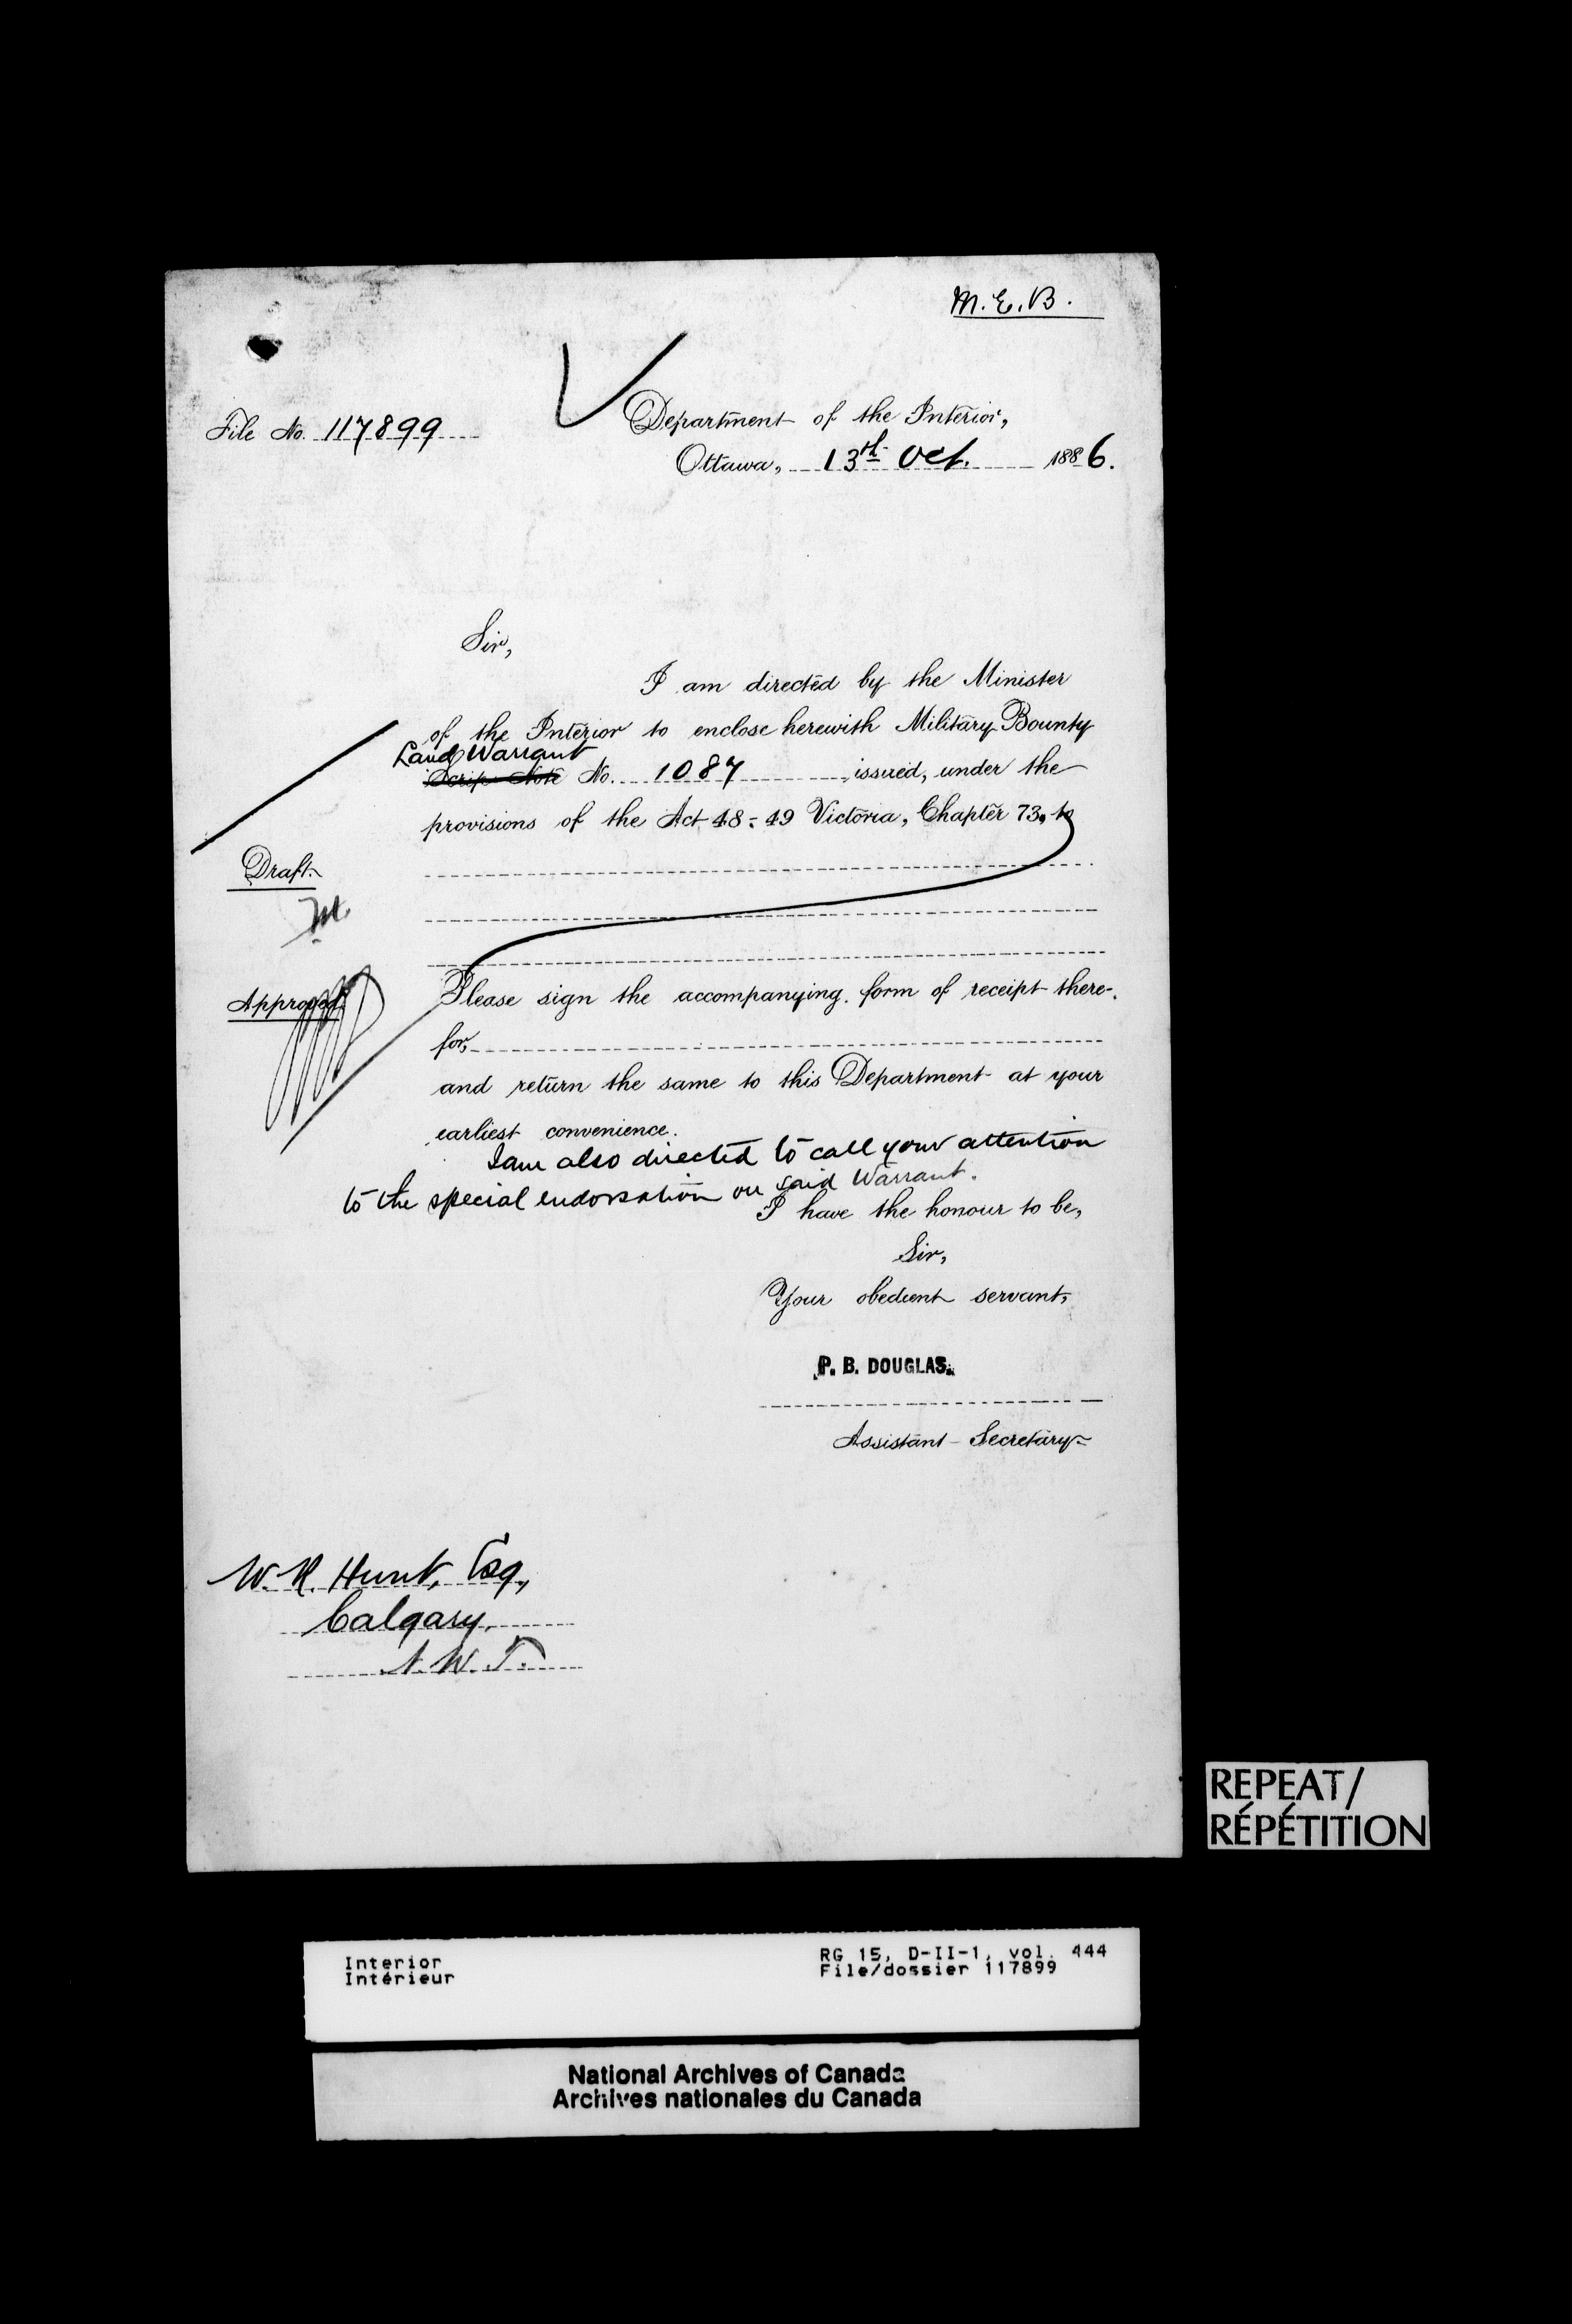 M.E.B.
File No. 117899
Department of the Interior,
Ottawa, 13th Oct. 1886.
Sir,
I am directed by the Minister
of the Interior to enclose herewith Military Bounty
Land Warrant
Scrip Note No. 1087 issued, under the
provisions of the Act 48-49 Victoria, Chapter 73, to
Draft.
Approved
Please sign the accompanying form of receipt there-
for,
and return the same to this Department at your
earliest convenience.
I am also directed to call your attention
to the special endorsation on said Warrant.
I have the honour to be,
Sir,
Your obedient servant,
P. B. DOUGLAS.
Assistant Secretary
W. R. Hunt, Esq,
Calgary,
N.W.T.
REPEAT/
RÉPÉTITION
Interior
Intérieur
RG 15, D-II-1, vol. 444
File/dossier 117899
National Archives of Canada
Archives nationales du Canada